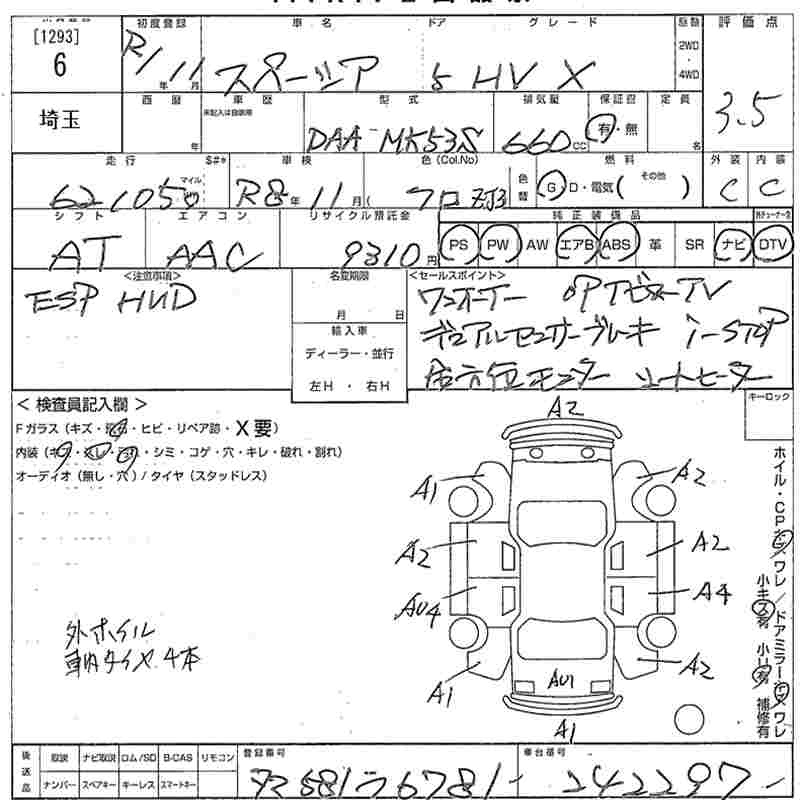 [1293] 初度登録 車名 ドア グレード 駆動 評価点
6 R1年11月 スペーシア 5 HV X 2WD・4WD 3.5
西暦 車歴 型式 排気量 保証書 定員
埼玉 年 未記入は自家用 DAA-MK53S 660cc 有・無 名
走行 S#* 車検 色(Col.No) 燃料 外装 内装
62105 マイル R8年11月( クロ ZJ3 色替 G・D・電気( その他 ) C C
シフト エアコン リサイクル預託金 純正装備品
AT AAC 9310円 PS PW AW エアB ABS 革 SR ナビ DTV
<注意事項> 名変期限 <セールスポイント>
ESP HUD ワンオーナー
月 日
輸入車 デュアルセンサーブレーキ i-STOP
ディーラー・並行
左H・右H シートヒーター
<検査員記入欄> キーロック
Fガラス(キズ・飛石・ヒビ・リペア跡・X要)
内装(キズ・ヨゴレ・スレ・シミ・コゲ・穴・キレ・破れ・割れ)
オーディオ(無し・穴)/タイヤ(スタッドレス)
A2
A1 A2
A2 A2
AU4 A4
A1 AU1 A2
A1
外ホイル
車内タイヤ4本
ホイル・CPキズワレ/ドアミラーキズワレ
小キズ有 小凹有 補修有
後送品 取説 ナビ取説 ロム/SD B-CAS リモコン 登録番号 車台番号
ナンバー スペアキー キーレス スマートキー 581 う 6781 242297